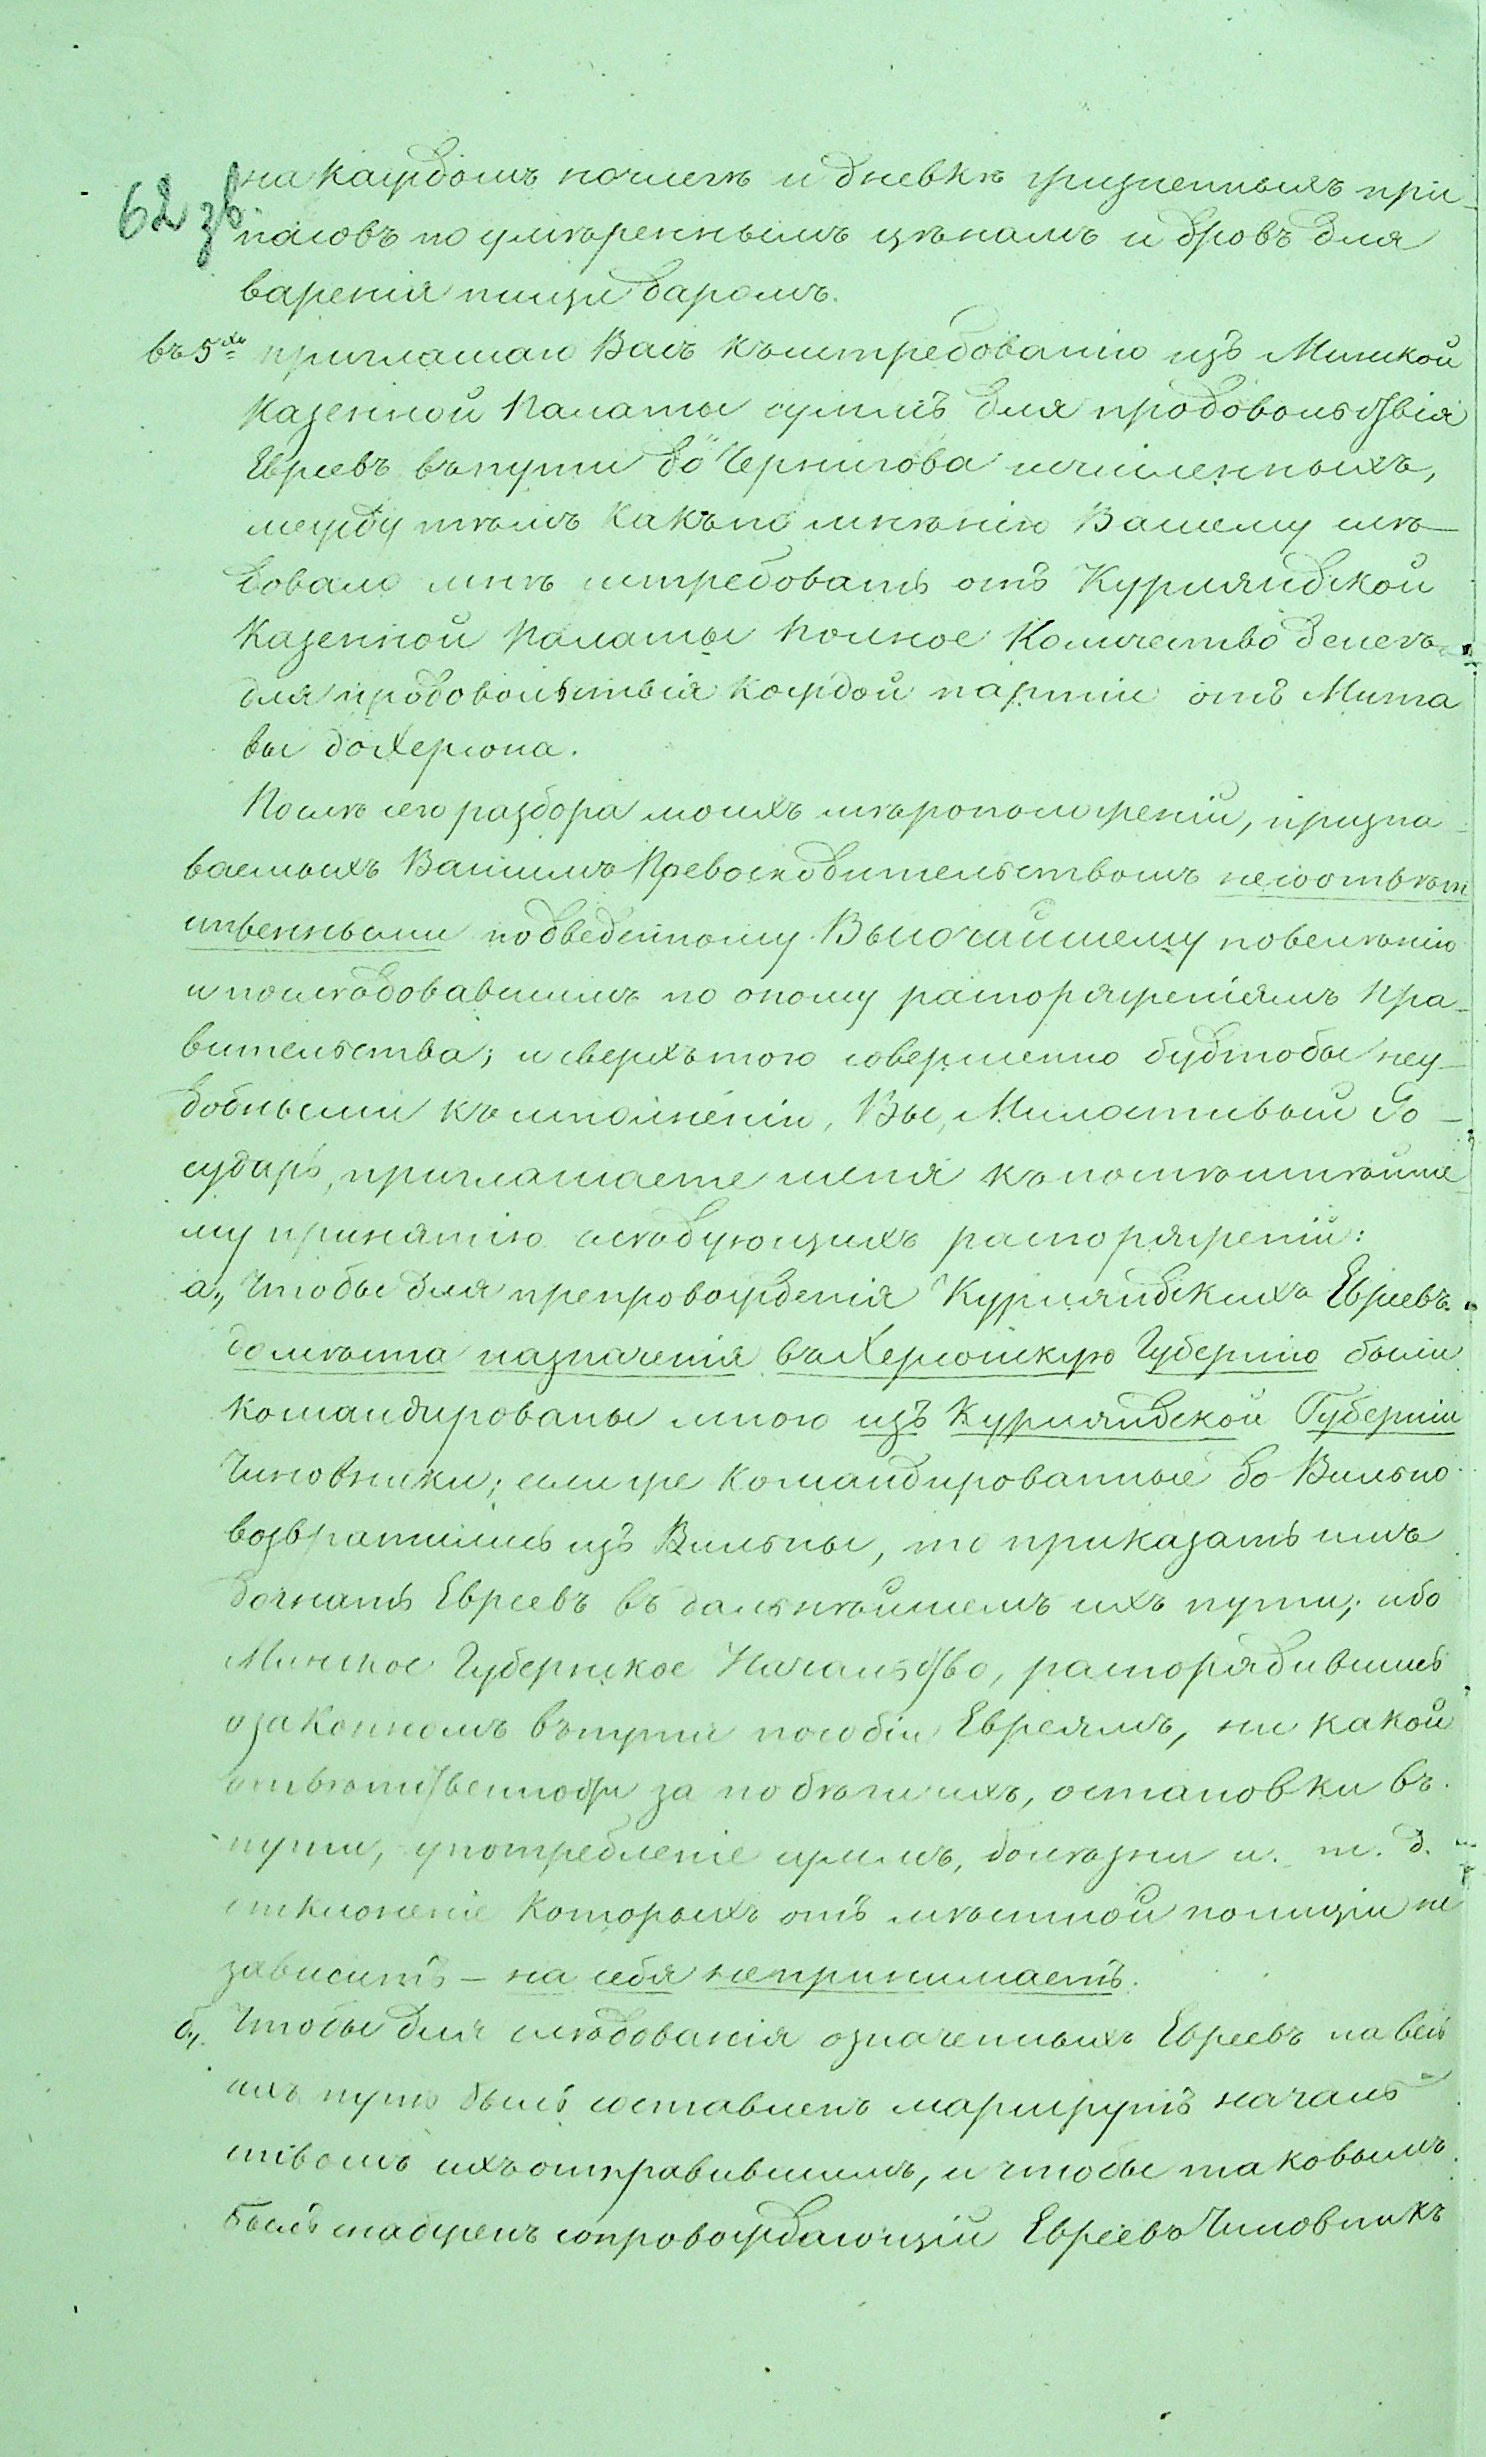 62 зв.
на каждомъ ночлегѣ и дневкѣ жизненныхъ при-
пасовъ по умѣреннымъ цѣнамъ и дровъ для
варенія пищи даромъ.
въ 5хъ приглашаю Васъ къ истребованію изъ Минской
Казенной Палаты суммъ для продовольствія
Евреевъ въ пути до Чернигова исчисленныхъ,
между тѣмъ какъ по мнѣнію Вашему слѣ-
довало мнѣ истребовать отъ Курляндской
Казенной Палаты полное количество денегъ
для продовольствія каждой партіи отъ Мита
вы до Херсона.
Послѣ сего разбора моихъ мѣроположеній, призна-
ваемыхъ Вашимъ Превосходительствомъ несоотвѣт
ственными подведенному Высочайшему повелѣнію
и послѣдовавшимъ по оному распоряженіямъ Пра-
вительства; и сверхъ того совершенно будтобы неу-
добными къ исполненіи, Вы, Милостивый Го-
сударь, приглашаете меня къ поспѣшнѣйше
му принятію слѣдующихъ распоряженій:
а., Чтобы для препровожденія Курляндскихъ Евреевъ
до мѣста назначенія въ Херсонскую Губернію были
командированы мною изъ Курляндской Губерніи
Чиновники; если же командированные до Вильно
возвратились изъ Вильны, то приказать имъ
догнать Евреевъ въ дальнѣйшемъ ихъ пути; ибо
Минское Губернское Начальство, распорядившись
о законномъ въ пути пособіи Евреямъ, ни какой
отвѣтственности за побѣги ихъ, остановки въ
пути, употребленіе суммъ, болѣзни и. т. д.
отклоненіе которыхъ отъ мѣстной полиціи не
зависитъ – на себя непринимаетъ.
б., Чтобы для слѣдованія означенныхъ Евреевъ на весь
ихъ путь былъ составленъ маршрутъ началь
ствомъ ихъ отправившимъ, и чтобы таковымъ
былъ снабженъ сопровождающій Евреевъ Чиновникъ